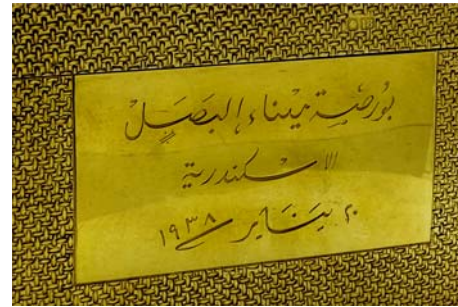 بورصة ميناء البصل
الاسكندرية
٢ يناير ١٩٣٨